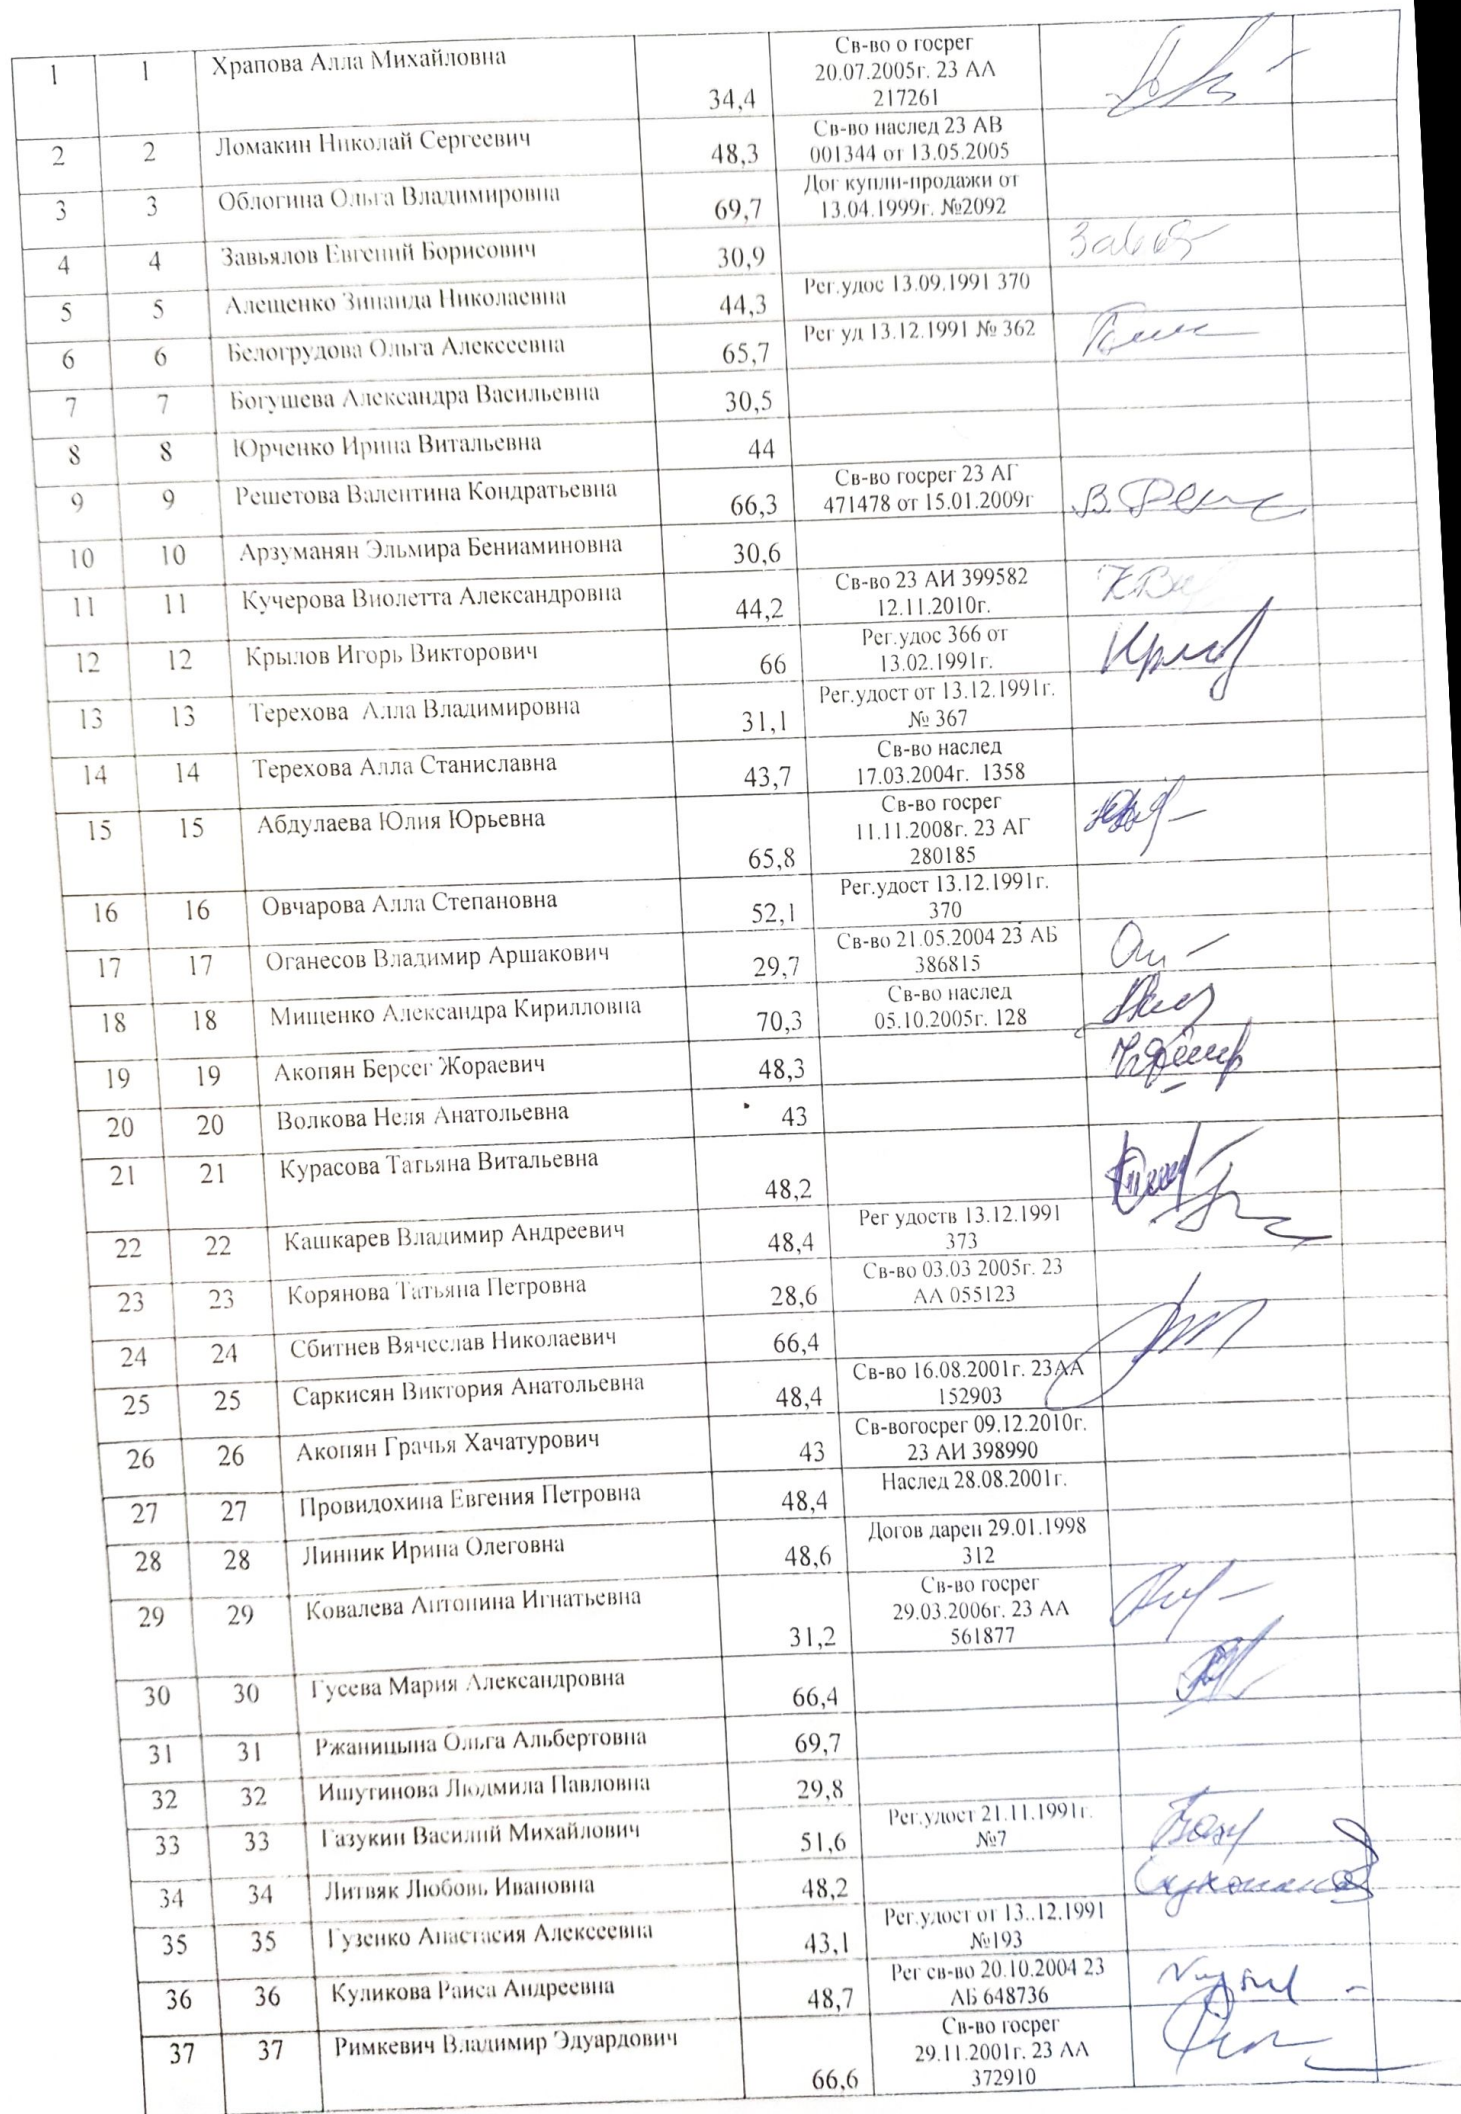 1 1 Храпова Алла Михайловна 34,4 Св-во о госрег
20.07.2005г. 23 АА
217261
2 2 Ломакин Николай Сергеевич 48,3 Св-во наслед 23 АВ
001344 от 13.05.2005
3 3 Облогина Ольга Владимировна 69,7 Дог купли-продажи от
13.04.1999г. №2092
4 4 Завьялов Евгений Борисович 30,9
5 5 Алещенко Зинаида Николаевна 44,3 Рег.удос 13.09.1991 370
6 6 Белогрудова Ольга Алексеевна 65,7 Рег уд 13.12.1991 № 362
7 7 Богушева Александра Васильевна 30,5
8 8 Юрченко Ирина Витальевна 44
9 9 Решетова Валентина Кондратьевна 66,3 Св-во госрег 23 АГ
471478 от 15.01.2009г
10 10 Арзуманян Эльмира Бениаминовна 30,6
11 11 Кучерова Виолетта Александровна 44,2 Св-во 23 АИ 399582
12.11.2010г.
12 12 Крылов Игорь Викторович 66 Рег.удос 366 от
13.02.1991г.
13 13 Терехова Алла Владимировна 31,1 Рег.удост от 13.12.1991г.
№ 367
14 14 Терехова Алла Станиславна 43,7 Св-во наслед
17.03.2004г. 1358
15 15 Абдулаева Юлия Юрьевна 65,8 Св-во госрег
11.11.2008г. 23 АГ
280185
16 16 Овчарова Алла Степановна 52,1 Рег.удост 13.12.1991г.
370
17 17 Оганесов Владимир Аршакович 29,7 Св-во 21.05.2004 23 АБ
386815
18 18 Мищенко Александра Кирилловна 70,3 Св-во наслед
05.10.2005г. 128
19 19 Акопян Берсег Жораевич 48,3
20 20 Волкова Неля Анатольевна 43
21 21 Курасова Татьяна Витальевна 48,2
22 22 Кашкарев Владимир Андреевич 48,4 Рег удоств 13.12.1991
373
23 23 Корянова Татьяна Петровна 28,6 Св-во 03.03 2005г. 23
АА 055123
24 24 Сбитнев Вячеслав Николаевич 66,4
25 25 Саркисян Виктория Анатольевна 48,4 Св-во 16.08.2001г. 23АА
152903
26 26 Акопян Грачья Хачатурович 43 Св-вогосрег 09.12.2010г.
23 АИ 398990
27 27 Провидохина Евгения Петровна 48,4 Наслед 28.08.2001г.
28 28 Линник Ирина Олеговна 48,6 Догов дарен 29.01.1998
312
29 29 Ковалева Антонина Игнатьевна 31,2 Св-во госрег
29.03.2006г. 23 АА
561877
30 30 Гусева Мария Александровна 66,4
31 31 Ржаницына Ольга Альбертовна 69,7
32 32 Ишутинова Людмила Павловна 29,8
33 33 Газукин Василий Михайлович 51,6 Рег.удост 21.11.1991г.
№7
34 34 Литвяк Любовь Ивановна 48,2
35 35 Гузенко Анастасия Алексеевна 43,1 Рег.удост от 13..12.1991
№193
36 36 Куликова Раиса Андреевна 48,7 Рег св-во 20.10.2004 23
АБ 648736
37 37 Римкевич Владимир Эдуардович 66,6 Св-во госрег
29.11.2001г. 23 АА
372910